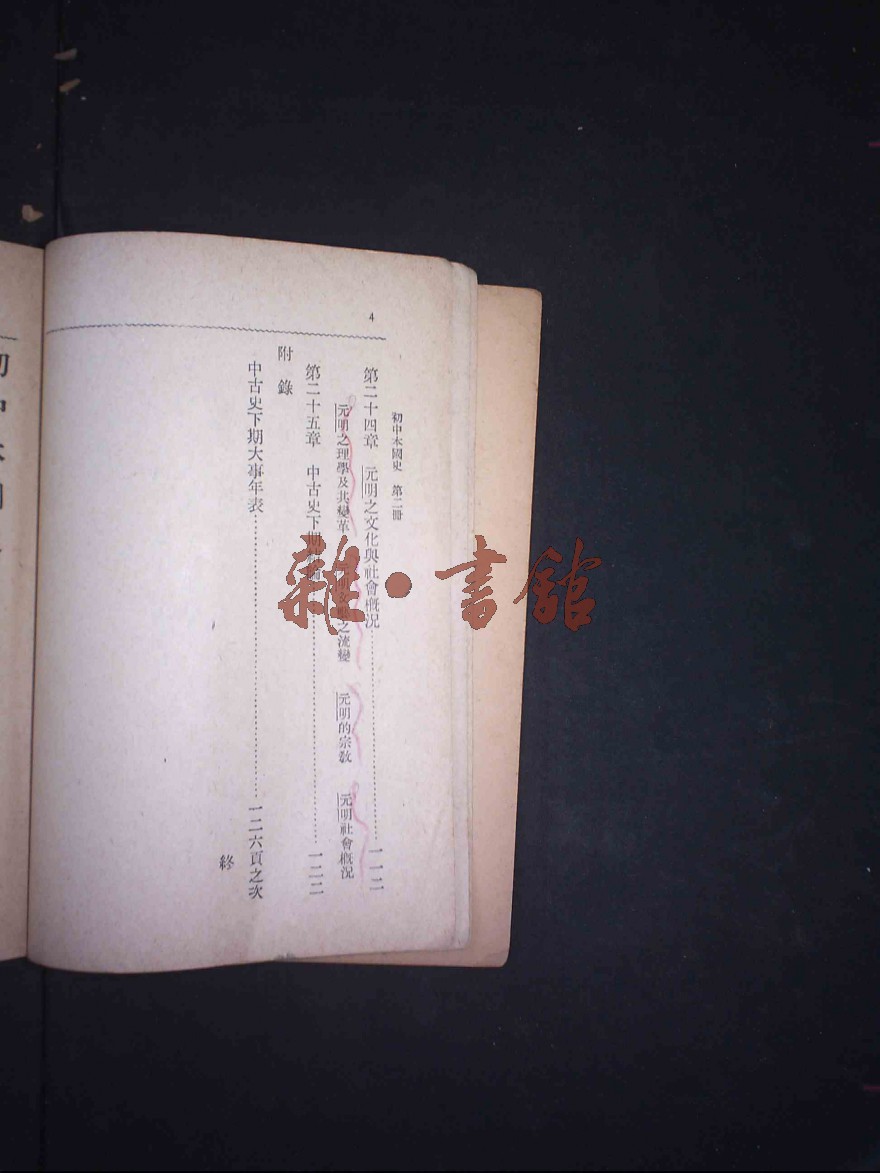 4
初中本國史　第二冊
第二十四章　元明之文化與社會概況…………一一二
元明之理學及其變革　元明文學之流變　元明的宗教　元明社會概況
第二十五章　中古史下期結論…………一二二
附錄
中古史下期大事年表…………一二六頁之次
終
雜·書館